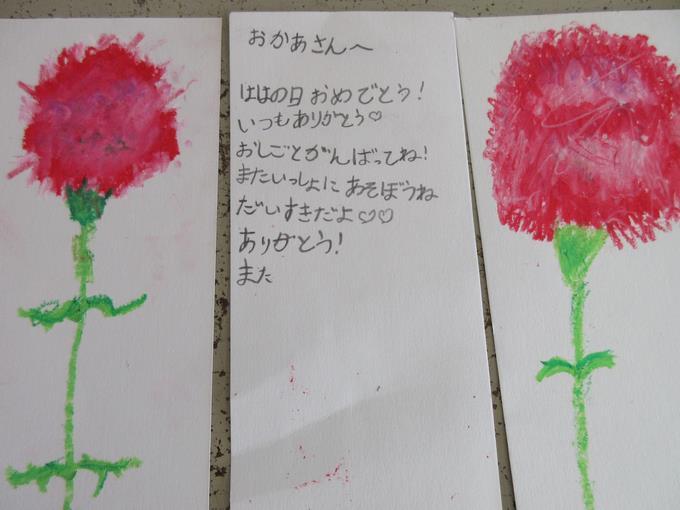 おかあさんへ
ははの日おめでとう!
いつもありがとう♡
おしごとがんばってね!
またいっしょにあそぼうね
だいすきだよ♡♡
ありがとう!
また